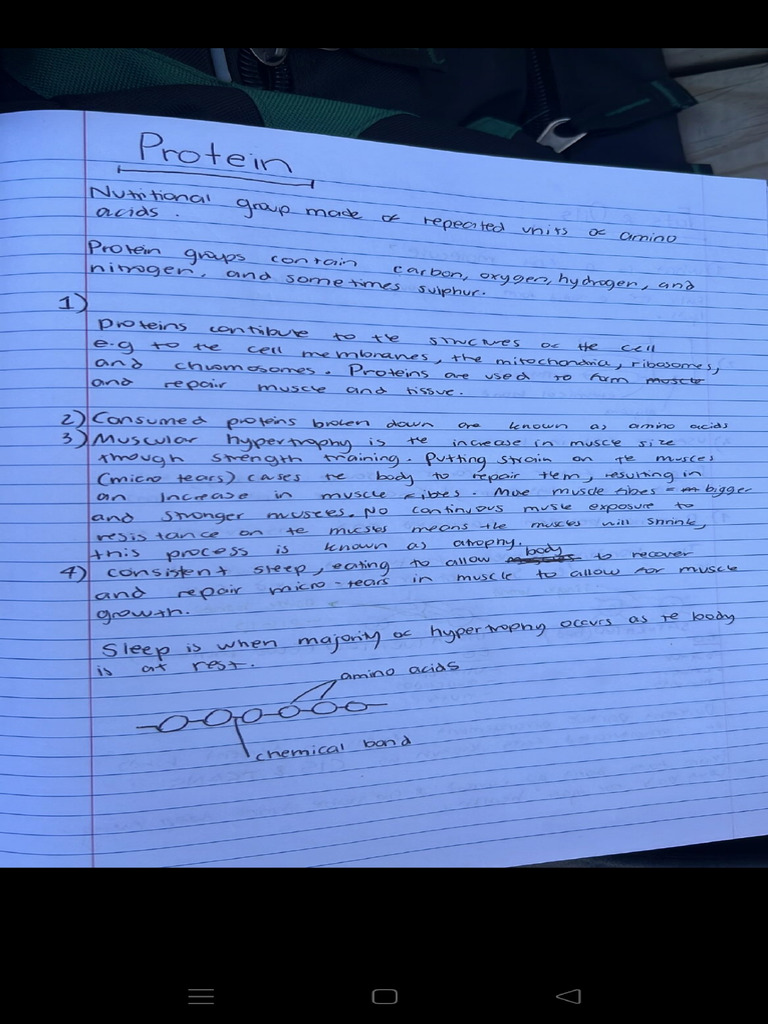 Protein
Nutritional group made of repeated units of amino
acids.
Protein groups contain carbon, oxygen, hydrogen, and
nitrogen, and sometimes sulphur.
1)
Proteins contibute to the structures of the cell
e.g to the cell membranes, the mitochondria, ribosomes,
and chromosomes. Proteins are used to form muscle
and repair muscle and tissue.
2) Consumed proteins broken down are known as amino acids
3) Muscular hypertrophy is the increase in muscle size
though strength training. Putting strain on the muscles
(micro tears) cases the body to repair them, resulting in
an increase in muscle fibres. More muscle fibres = bigger
and stronger muscles. No continuous muscle exposure to
resistance on te muscles means the muscles will shrink,
this process is known as atrophy.
4) consistent sleep, eating to allow body to recover
and repair micro-tears in muscle to allow for muscle
growth.
Sleep is when majority of hypertrophy occurs as te body
is at rest.
amino acids
chemical bond